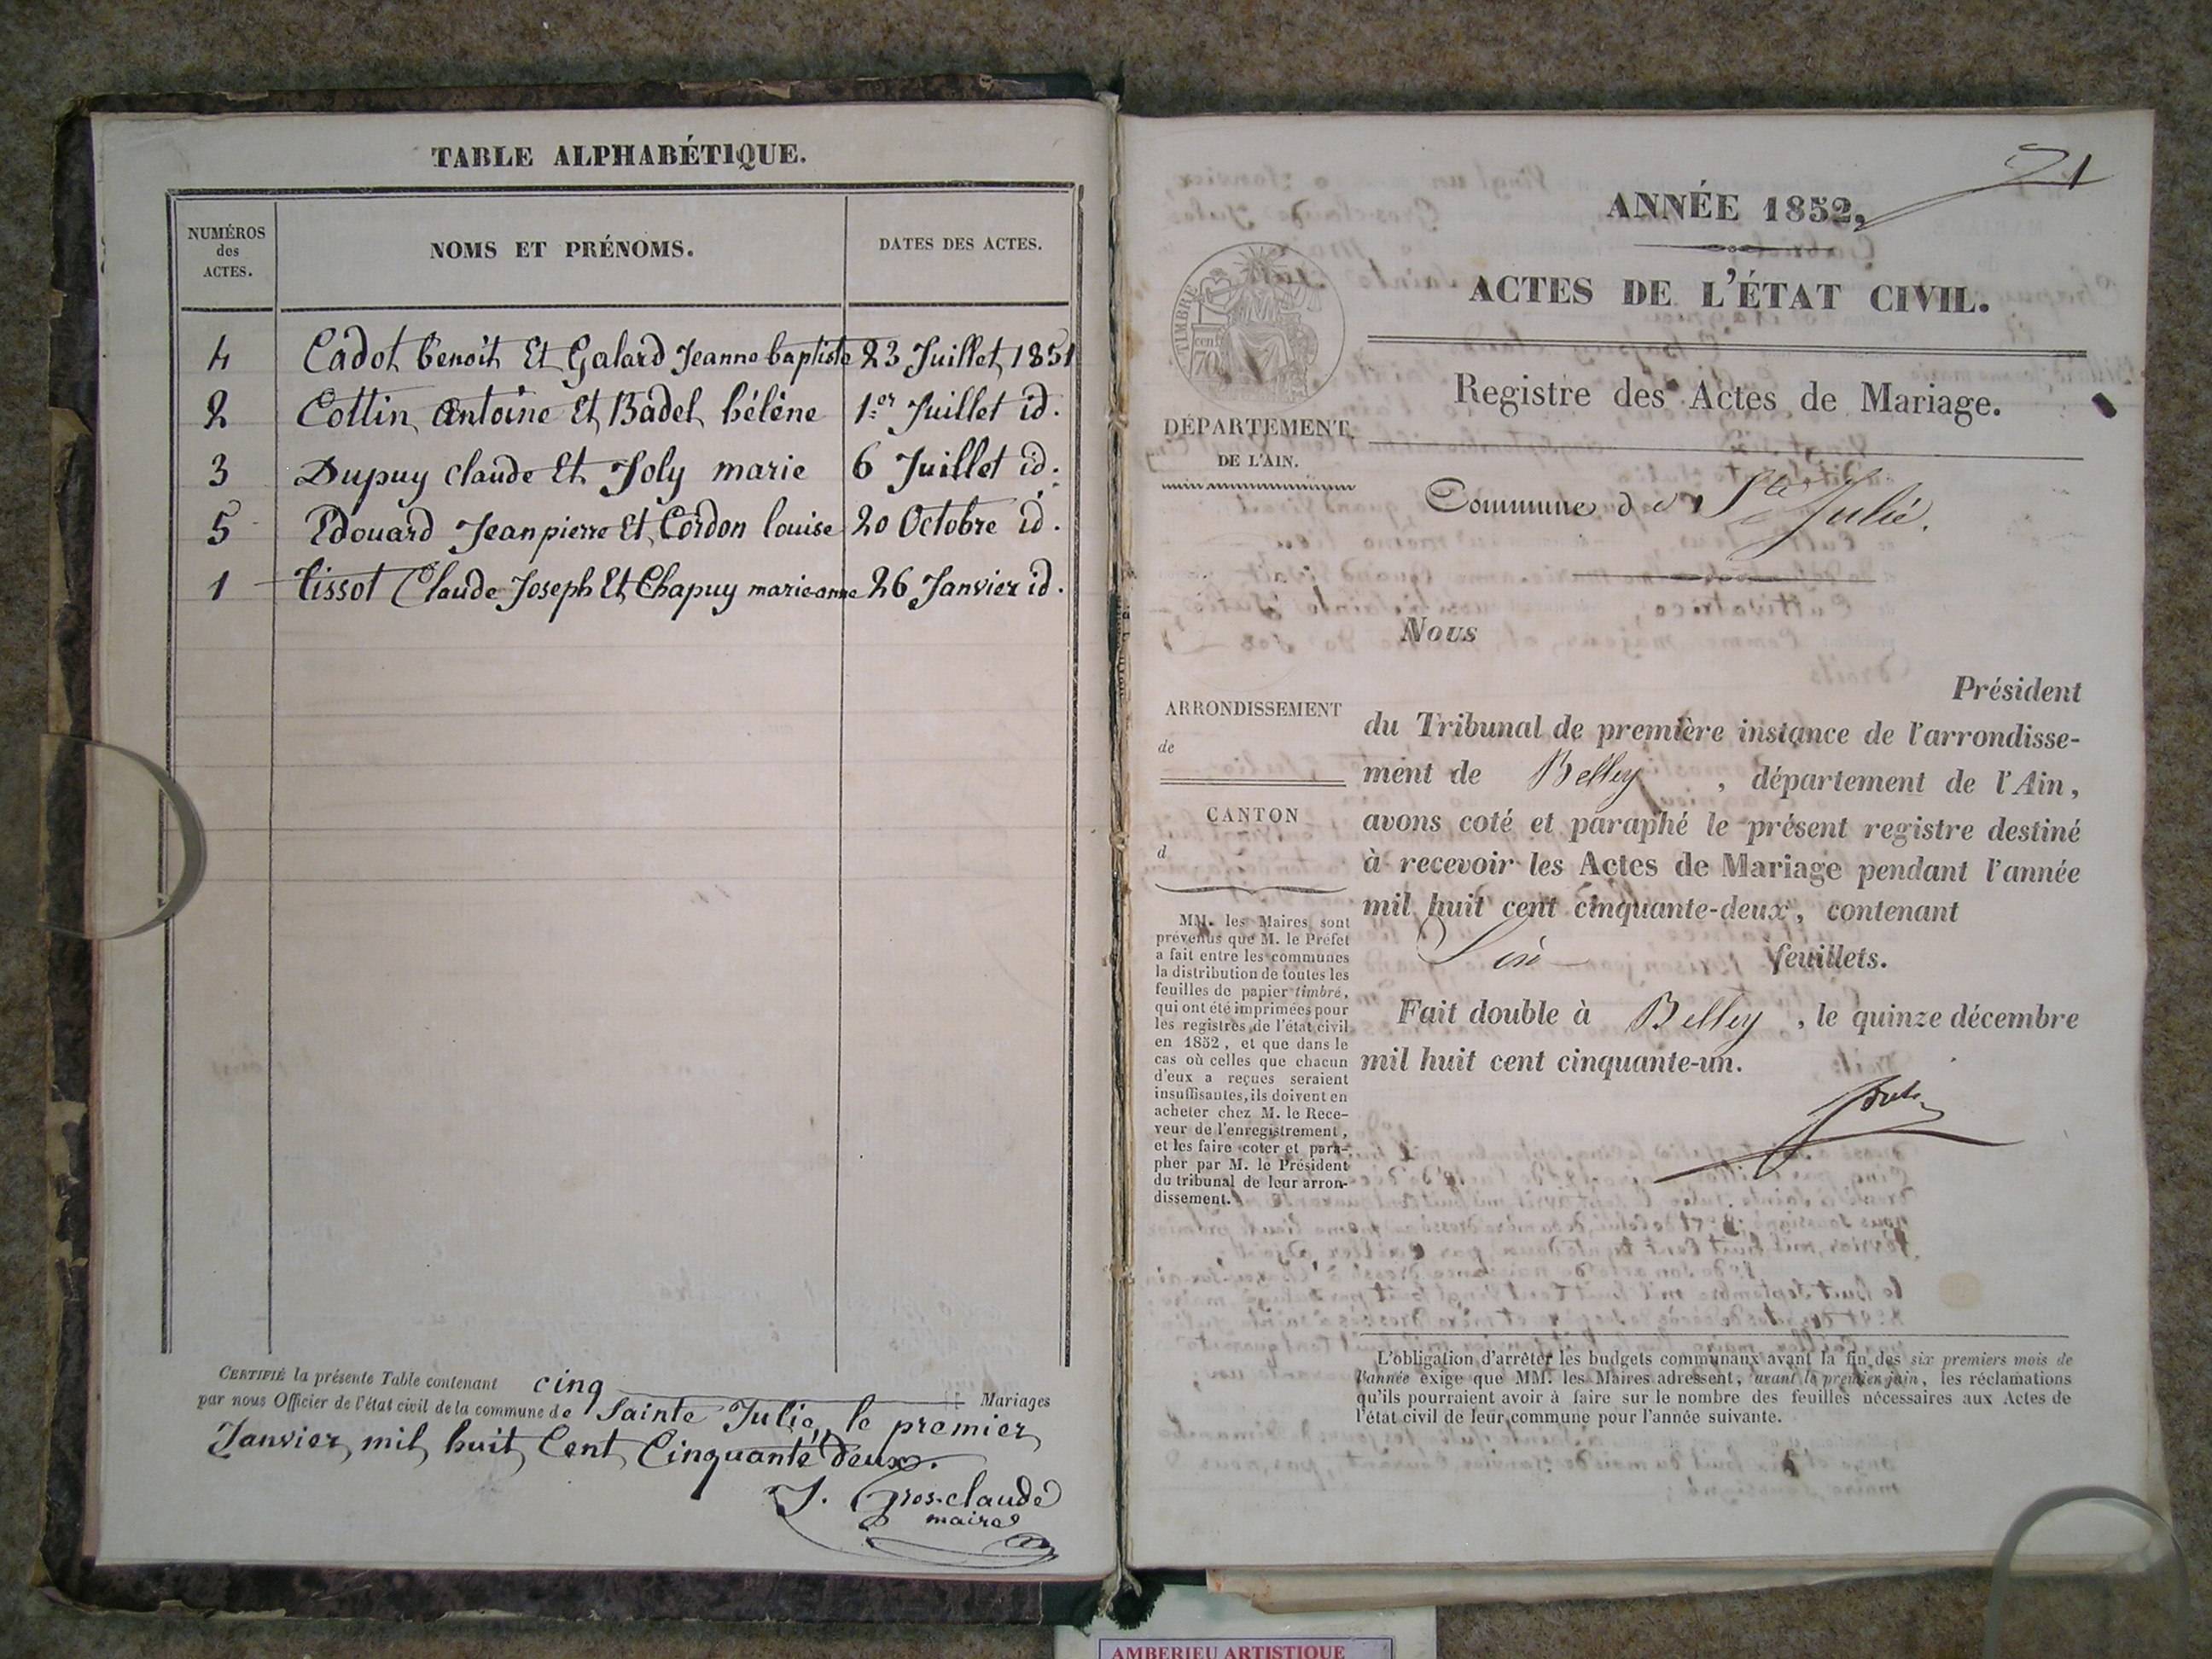 TABLE ALPHABÉTIQUE.
NUMÉROS
des
ACTES.
NOMS ET PRÉNOMS.
DATES DES ACTES.
4 Cadot benoît Et Galard Jeanne baptiste 23 Juillet 1851
2 Cottin Antoine Et Badel hélène 1.er Juillet id.
3 Dupuy claude Et Joly marie 6 Juillet id.
5 Edouard Jean pierre Et Cordon louise 20 Octobre id.
1 Tissot Claude Joseph Et Chapuy marie-anne 26 Janvier id.
CERTIFIÉ la présente Table contenant cinq Mariages
par nous Officier de l'état civil de la commune de Sainte Julie, le premier
Janvier, mil huit Cent Cinquante deux.
J. Gros-claude
maire
21
ANNÉE 1852,
ACTES DE L'ÉTAT CIVIL.
TIMBRE
70
cent
Registre des Actes de Mariage.
DÉPARTEMENT
DE L'AIN.
Commune de Ste Julie.
Nous
Président
du Tribunal de première instance de l'arrondisse-
ment de Belley, département de l'Ain,
avons coté et paraphé le présent registre destiné
à recevoir les Actes de Mariage pendant l'année
mil huit cent cinquante-deux, contenant
Six feuillets.
Fait double à Belley, le quinze décembre
mil huit cent cinquante-un.
ARRONDISSEMENT
de
CANTON
d
MM. les Maires sont
prévenus que M. le Préfet
a fait entre les communes
la distribution de toutes les
feuilles de papier timbré,
qui ont été imprimées pour
les registres de l'état civil
en 1852, et que dans le
cas où celles que chacun
d'eux a reçues seraient
insuffisantes, ils doivent en
acheter chez M. le Rece-
veur de l'enregistrement,
et les faire coter et para-
pher par M. le Président
du tribunal de leur arron-
dissement.
L'obligation d'arrêter les budgets communaux avant la fin des six premiers mois de
l'année exige que MM. les Maires adressent, avant le premier juin, les réclamations
qu'ils pourraient avoir à faire sur le nombre des feuilles nécessaires aux Actes de
l'état civil de leur commune pour l'année suivante.
AMBERIEU ARTISTIQUE